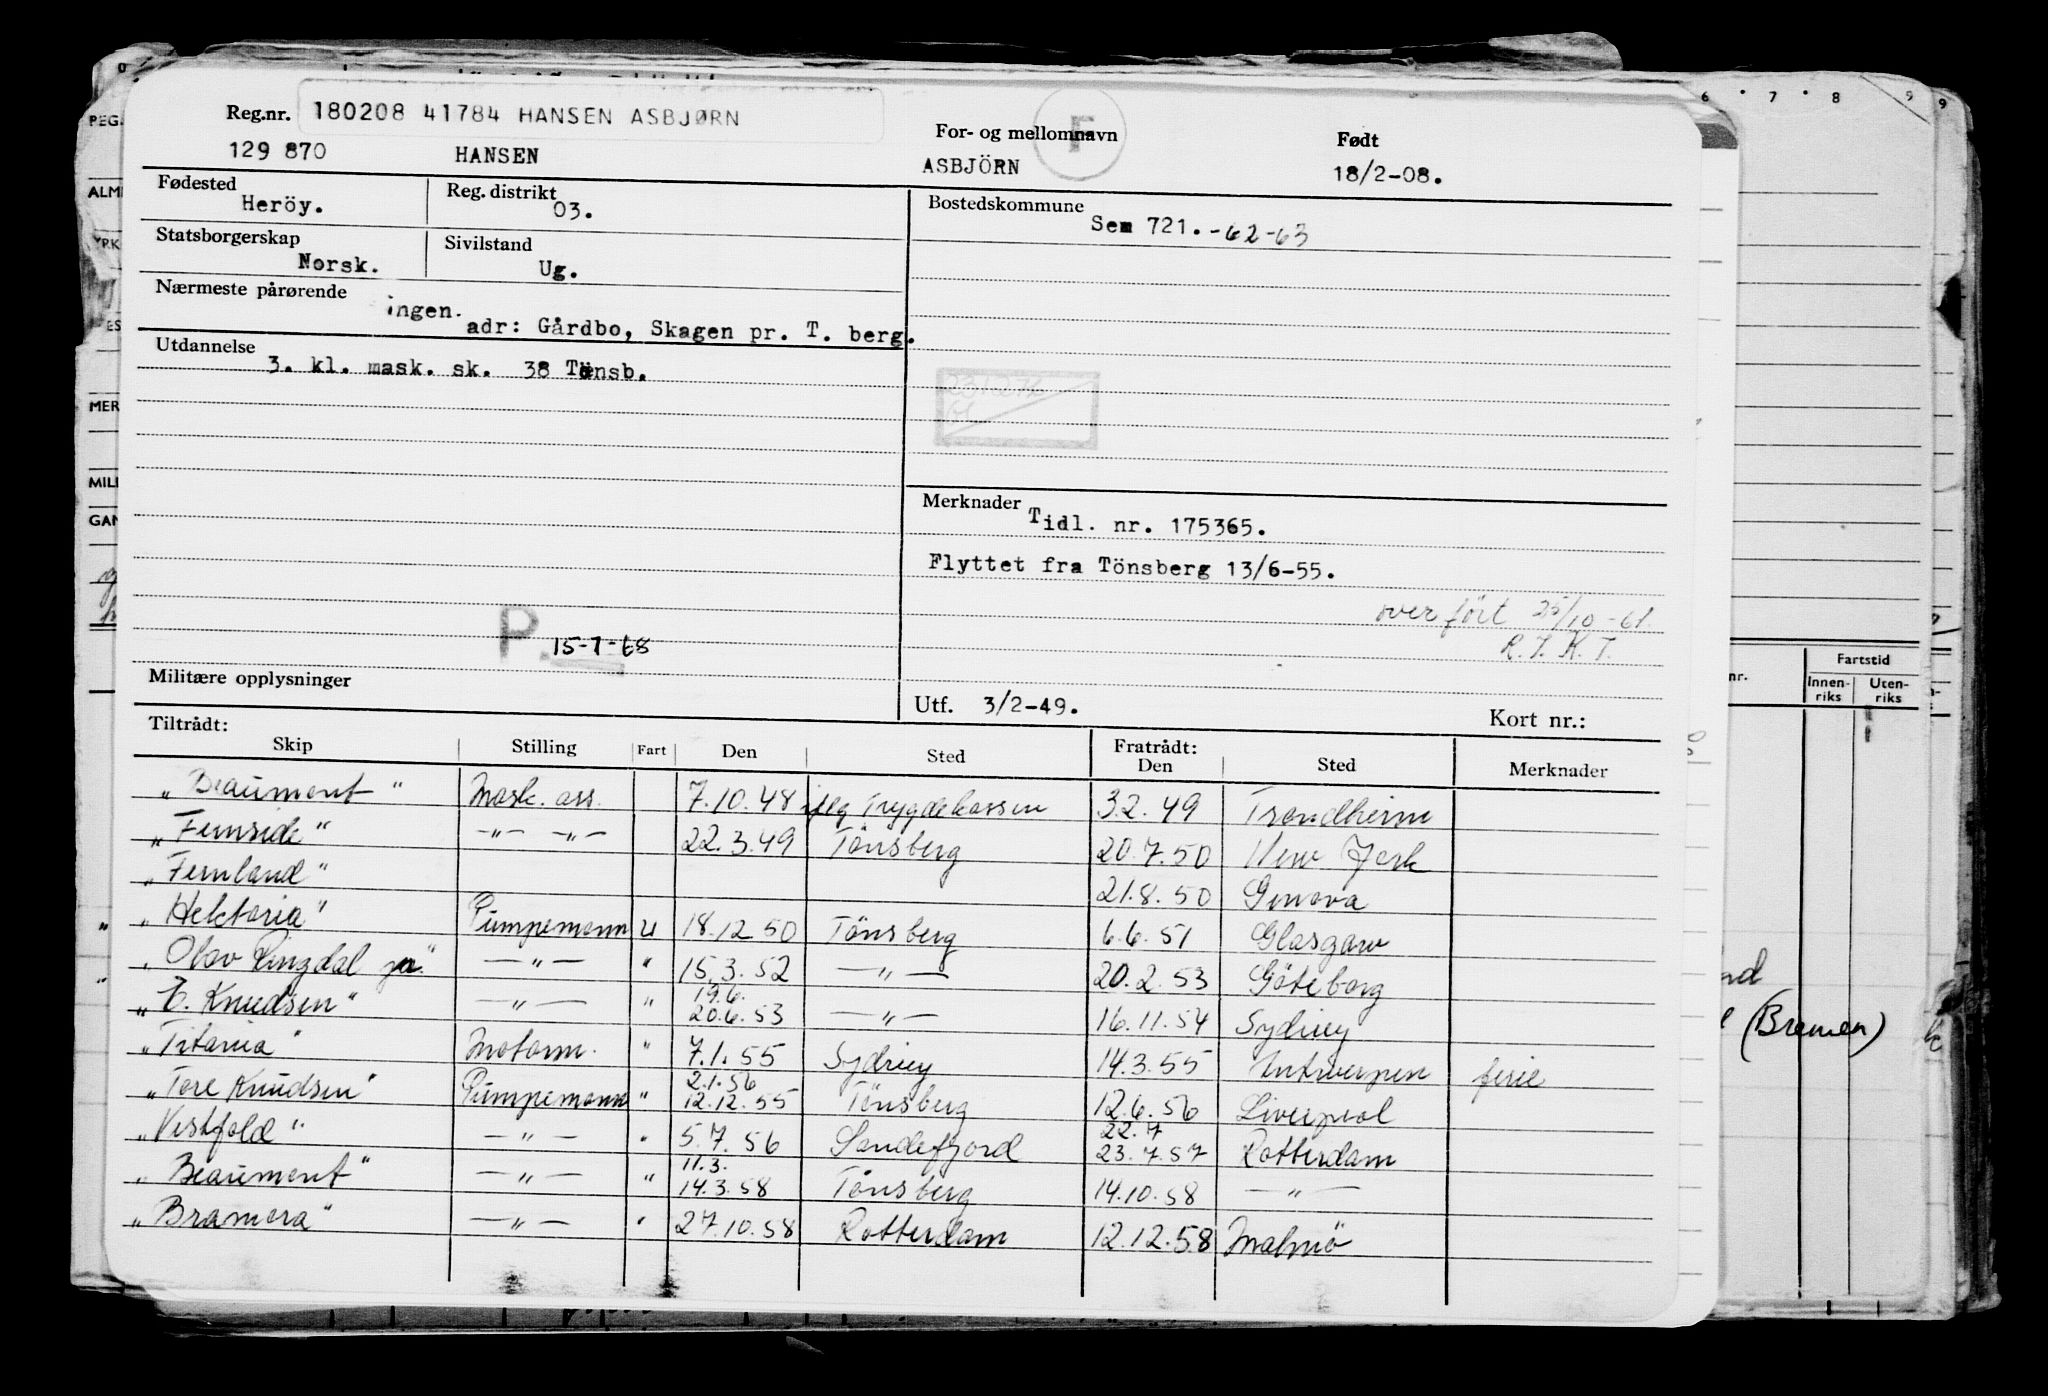 Reg.nr. 180208 41784 HANSEN ASBJØRN
For- og mellomnavn F Født
129 870 HANSEN ASBJÖRN 18/2-08.
Fødested Heröy. Reg. distrikt 03.
Bostedskommune Sem 721. -62-63
Statsborgerskap Norsk. Sivilstand Ug.
Nærmeste pårørende ingen.
adr: Gårdbo, Skagen pr. T. berg.
Utdannelse 3. kl. mask. sk. 38 Tönsb.
Merknader Tidl. nr. 175365.
Flyttet fra Tönsberg 13/6-55.
overført 25/10-61
R.T.K.T.
P. 15-7-68
Militære opplysninger
Utf. 3/2-49. Kort nr.:
Tiltrådt: Fratrådt:
Skip Stilling Fart Den Sted Den Sted Merknader
"Beaumont" Mask. ass. 7.10.48 iflg Trygdekassen 3.2.49 Trondheim
"Fernside" —"— —"— 22.3.49 Tönsberg 20.7.50 New York
"Fernland" 21.8.50 Genova
"Hektoria" Pumpemann U 18.12 50 Tönsberg 6.6.51 Glasgow
"Olav Ringdal jr." —"— " 15.3.52 —"— 20.2.53 Göteborg
"E. Knudsen" —"— " 19.6. 20.6.53 —"— 16.11.54 Sydney
"Titania" Motorm. " 7.1.55 Sydney 14.3.55 Antwerpen ferie
"Tore Knudsen" Pumpemann " 2.1.56 12.12.55 Tönsberg 12.6.56 Liverpool
"Vestfold" —"— " 5.7.56 Sandefjord 22.7 23.7.57 Rotterdam
"Beaumont" —"— " 11.3. 14.3.58 Tönsberg 14.10.58 —"—
"Bramora" —"— " 27.10.58 Rotterdam 12.12.58 Malmö
Fartstid
Innen-riks Uten-riks
(Bremen)